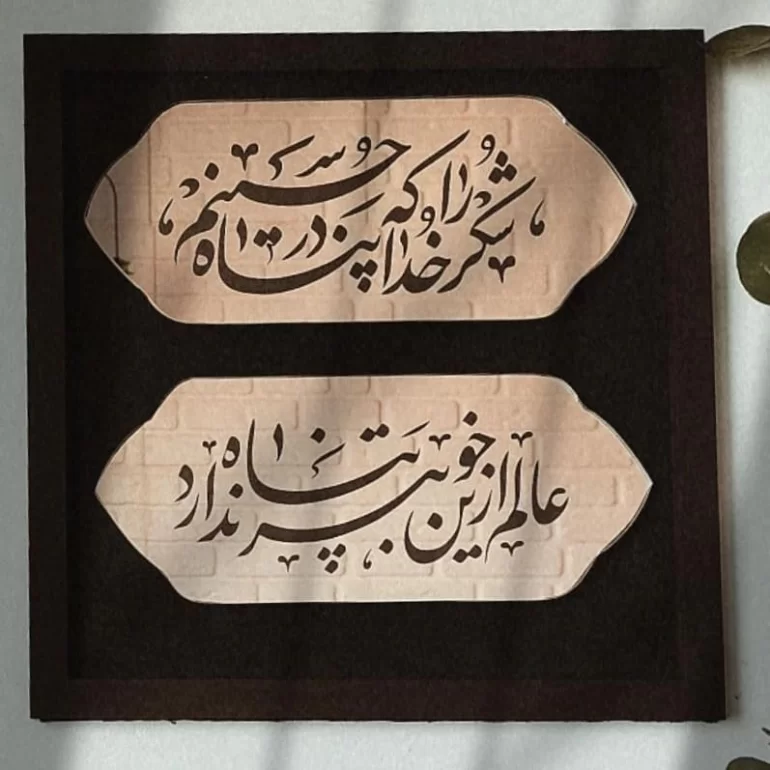 شکر خدا را که در پناه حسینم
عالم از این خوبتر پناه ندارد